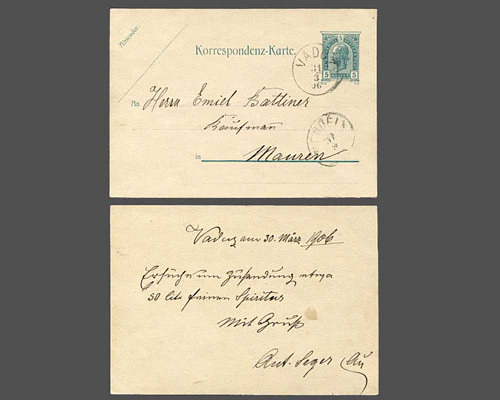 Absender:
Korrespondenz-Karte.
5 5
VADUZ
31
3
06
An Herrn Emiel Battliner
Kaufmann
in Mauren
Vaduz am 30. März 1906
Ersuche um Zusendung etwa
50 lite feinen Spiritus
Mit Gruß
Ant. Seger Au